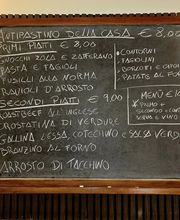 ANTIPASTINO DELLA CASA € 8,00
PRIMI PIATTI € 8,00
GNOCCHI ZOLA E ZAFFERANO
PASTA E FAGIOLI
FUSILLI ALLA NORMA
RAVIOLI D'ARROSTO
SECONDI PIATTI € 9,00
ROASTBEEF ALL'INGLESE
CROSTATINA DI VERDURE
GALLINA LESSA, COTECHINO E SALSA VERDE
BRANZINO AL FORNO
ARROSTO DI TACCHINO
CONTORNI
FAGIOLINI
BORLOTTI E CIPOLLE
PATATE AL FORNO
MENÙ
PRIMO +
SECONDO E CONTORNO
ACQUA E VINO